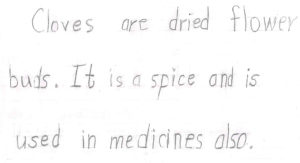 Cloves are dried flower
buds. It is a spice and is
used in medicines also.